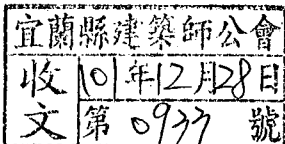 宜蘭縣建築師公會
收文
101年12月28日
第0933號